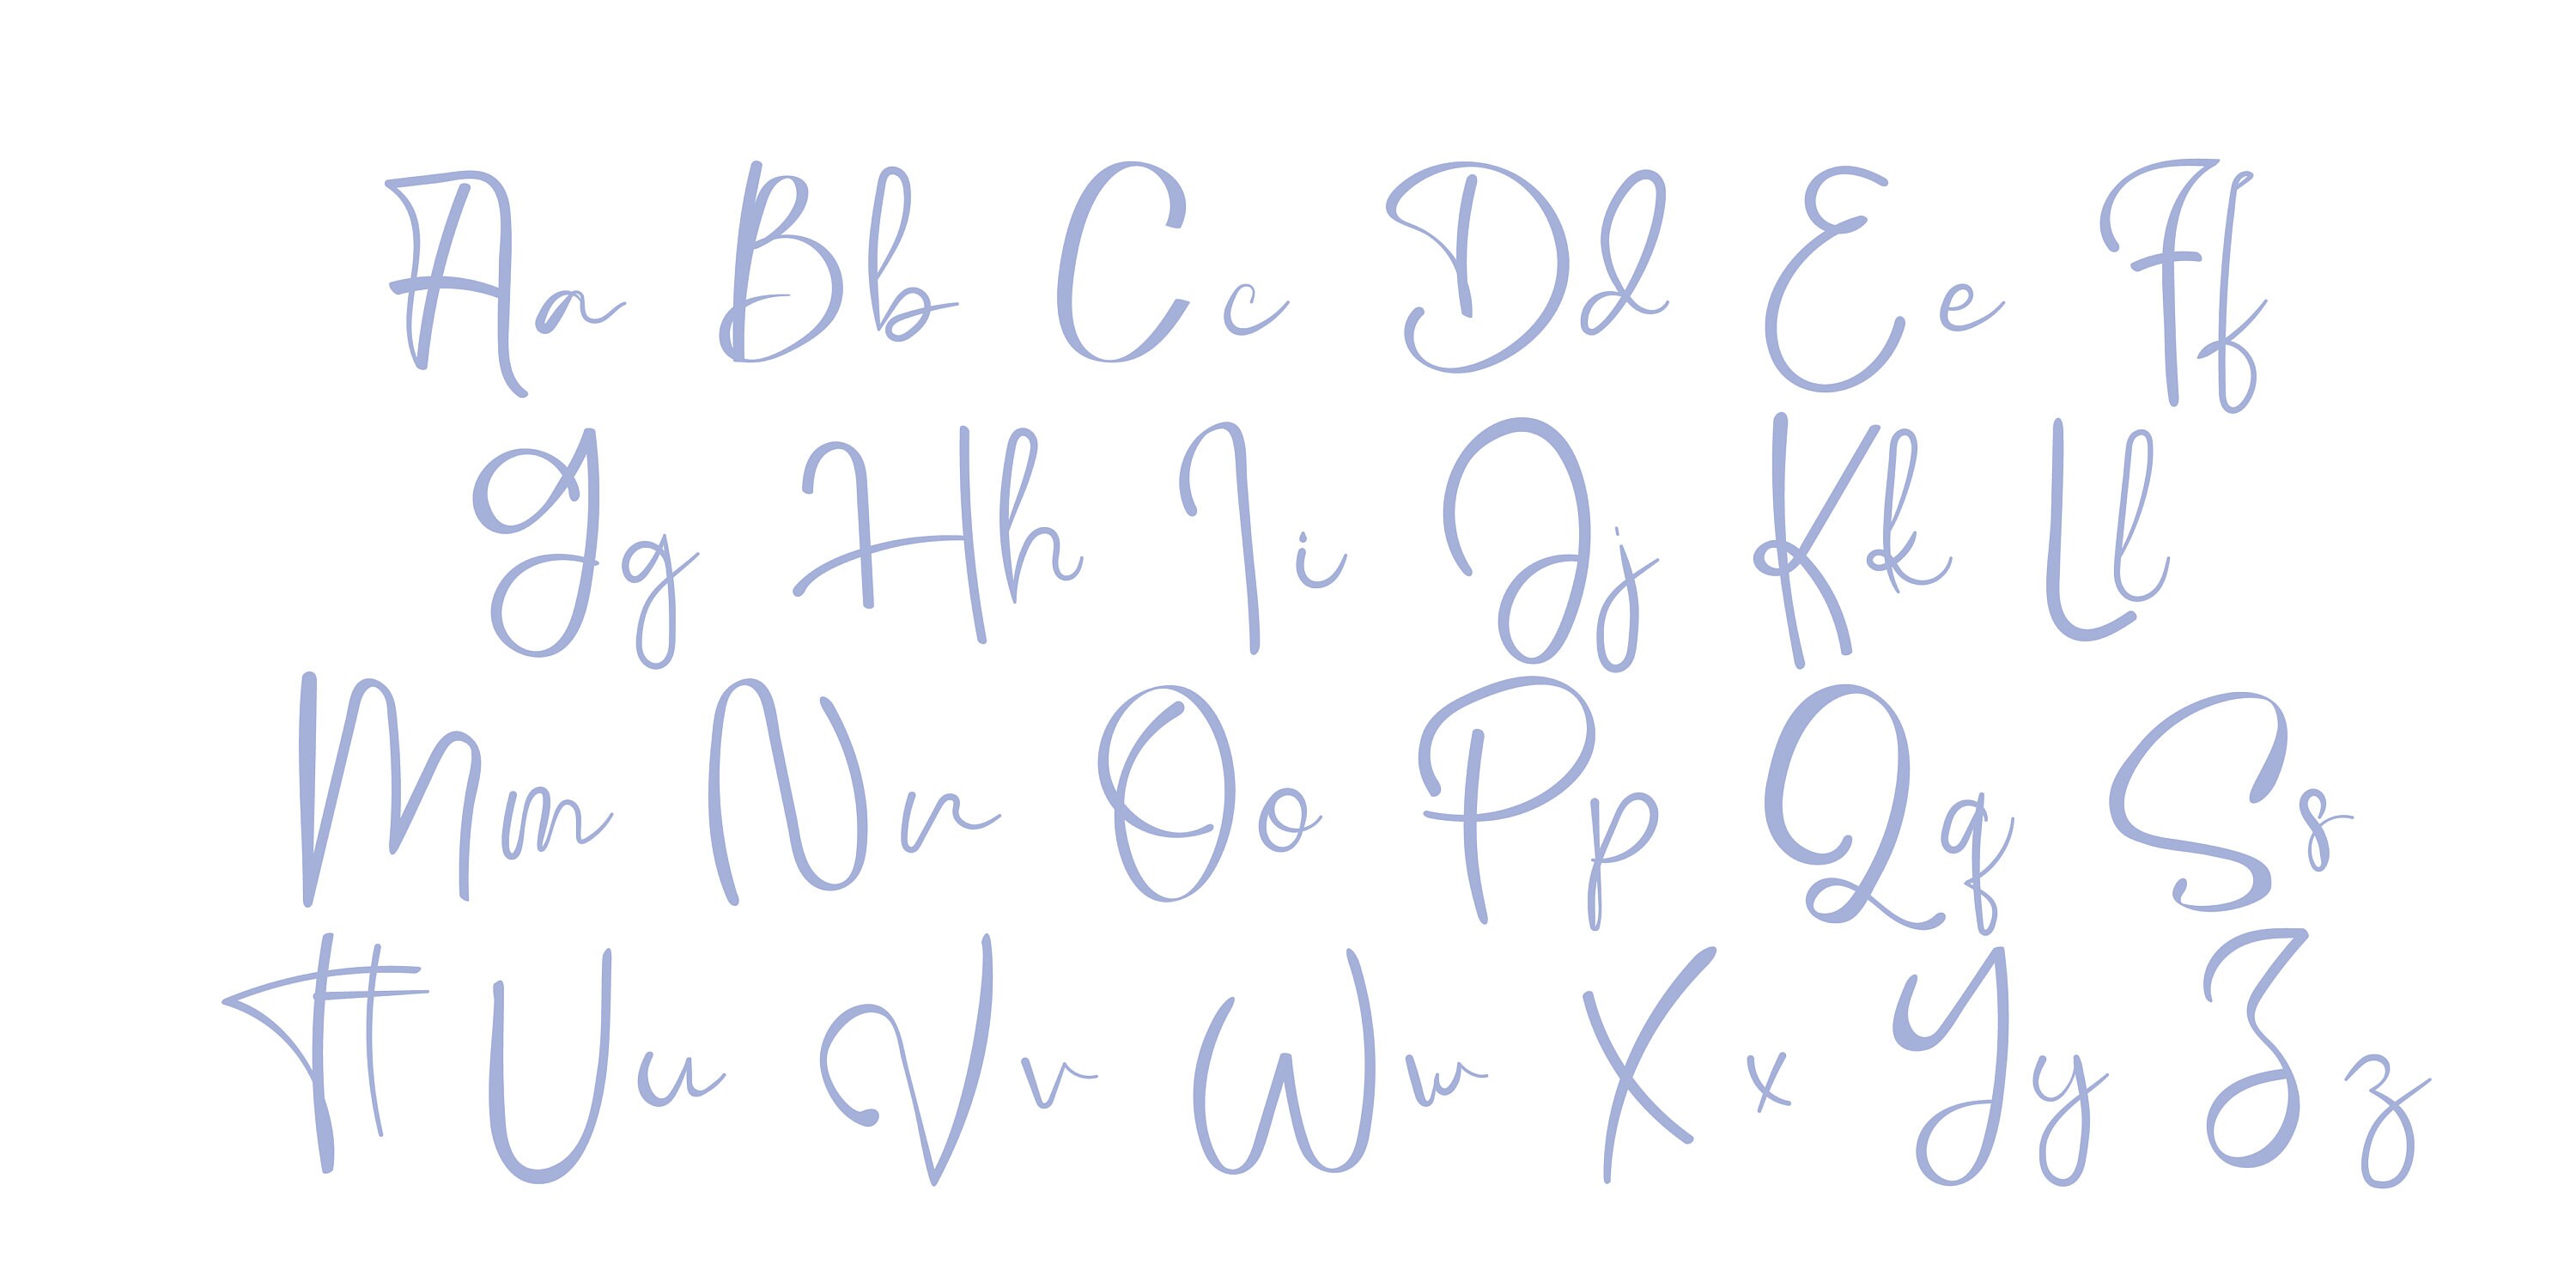 Aa Bb Cc Dd Ee Ff
Gg Hh Ii Jj Kk Ll
Mm Nn Oo Pp Qq Ss
Tt Uu Vv Ww Xx Yy Zz